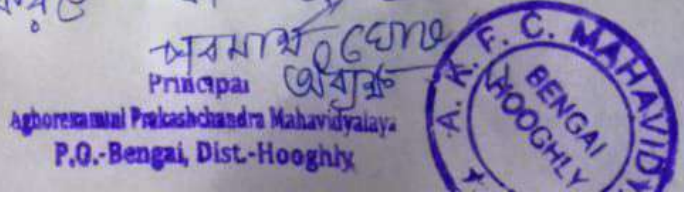 পরমার্থ ঘোষ
অধ্যক্ষ
Principal
Aghorekamini Prakashchandra Mahavidyalaya
P.O.-Bengai, Dist.-Hooghly
MAHAVID
BENGAI
HOOGHLY